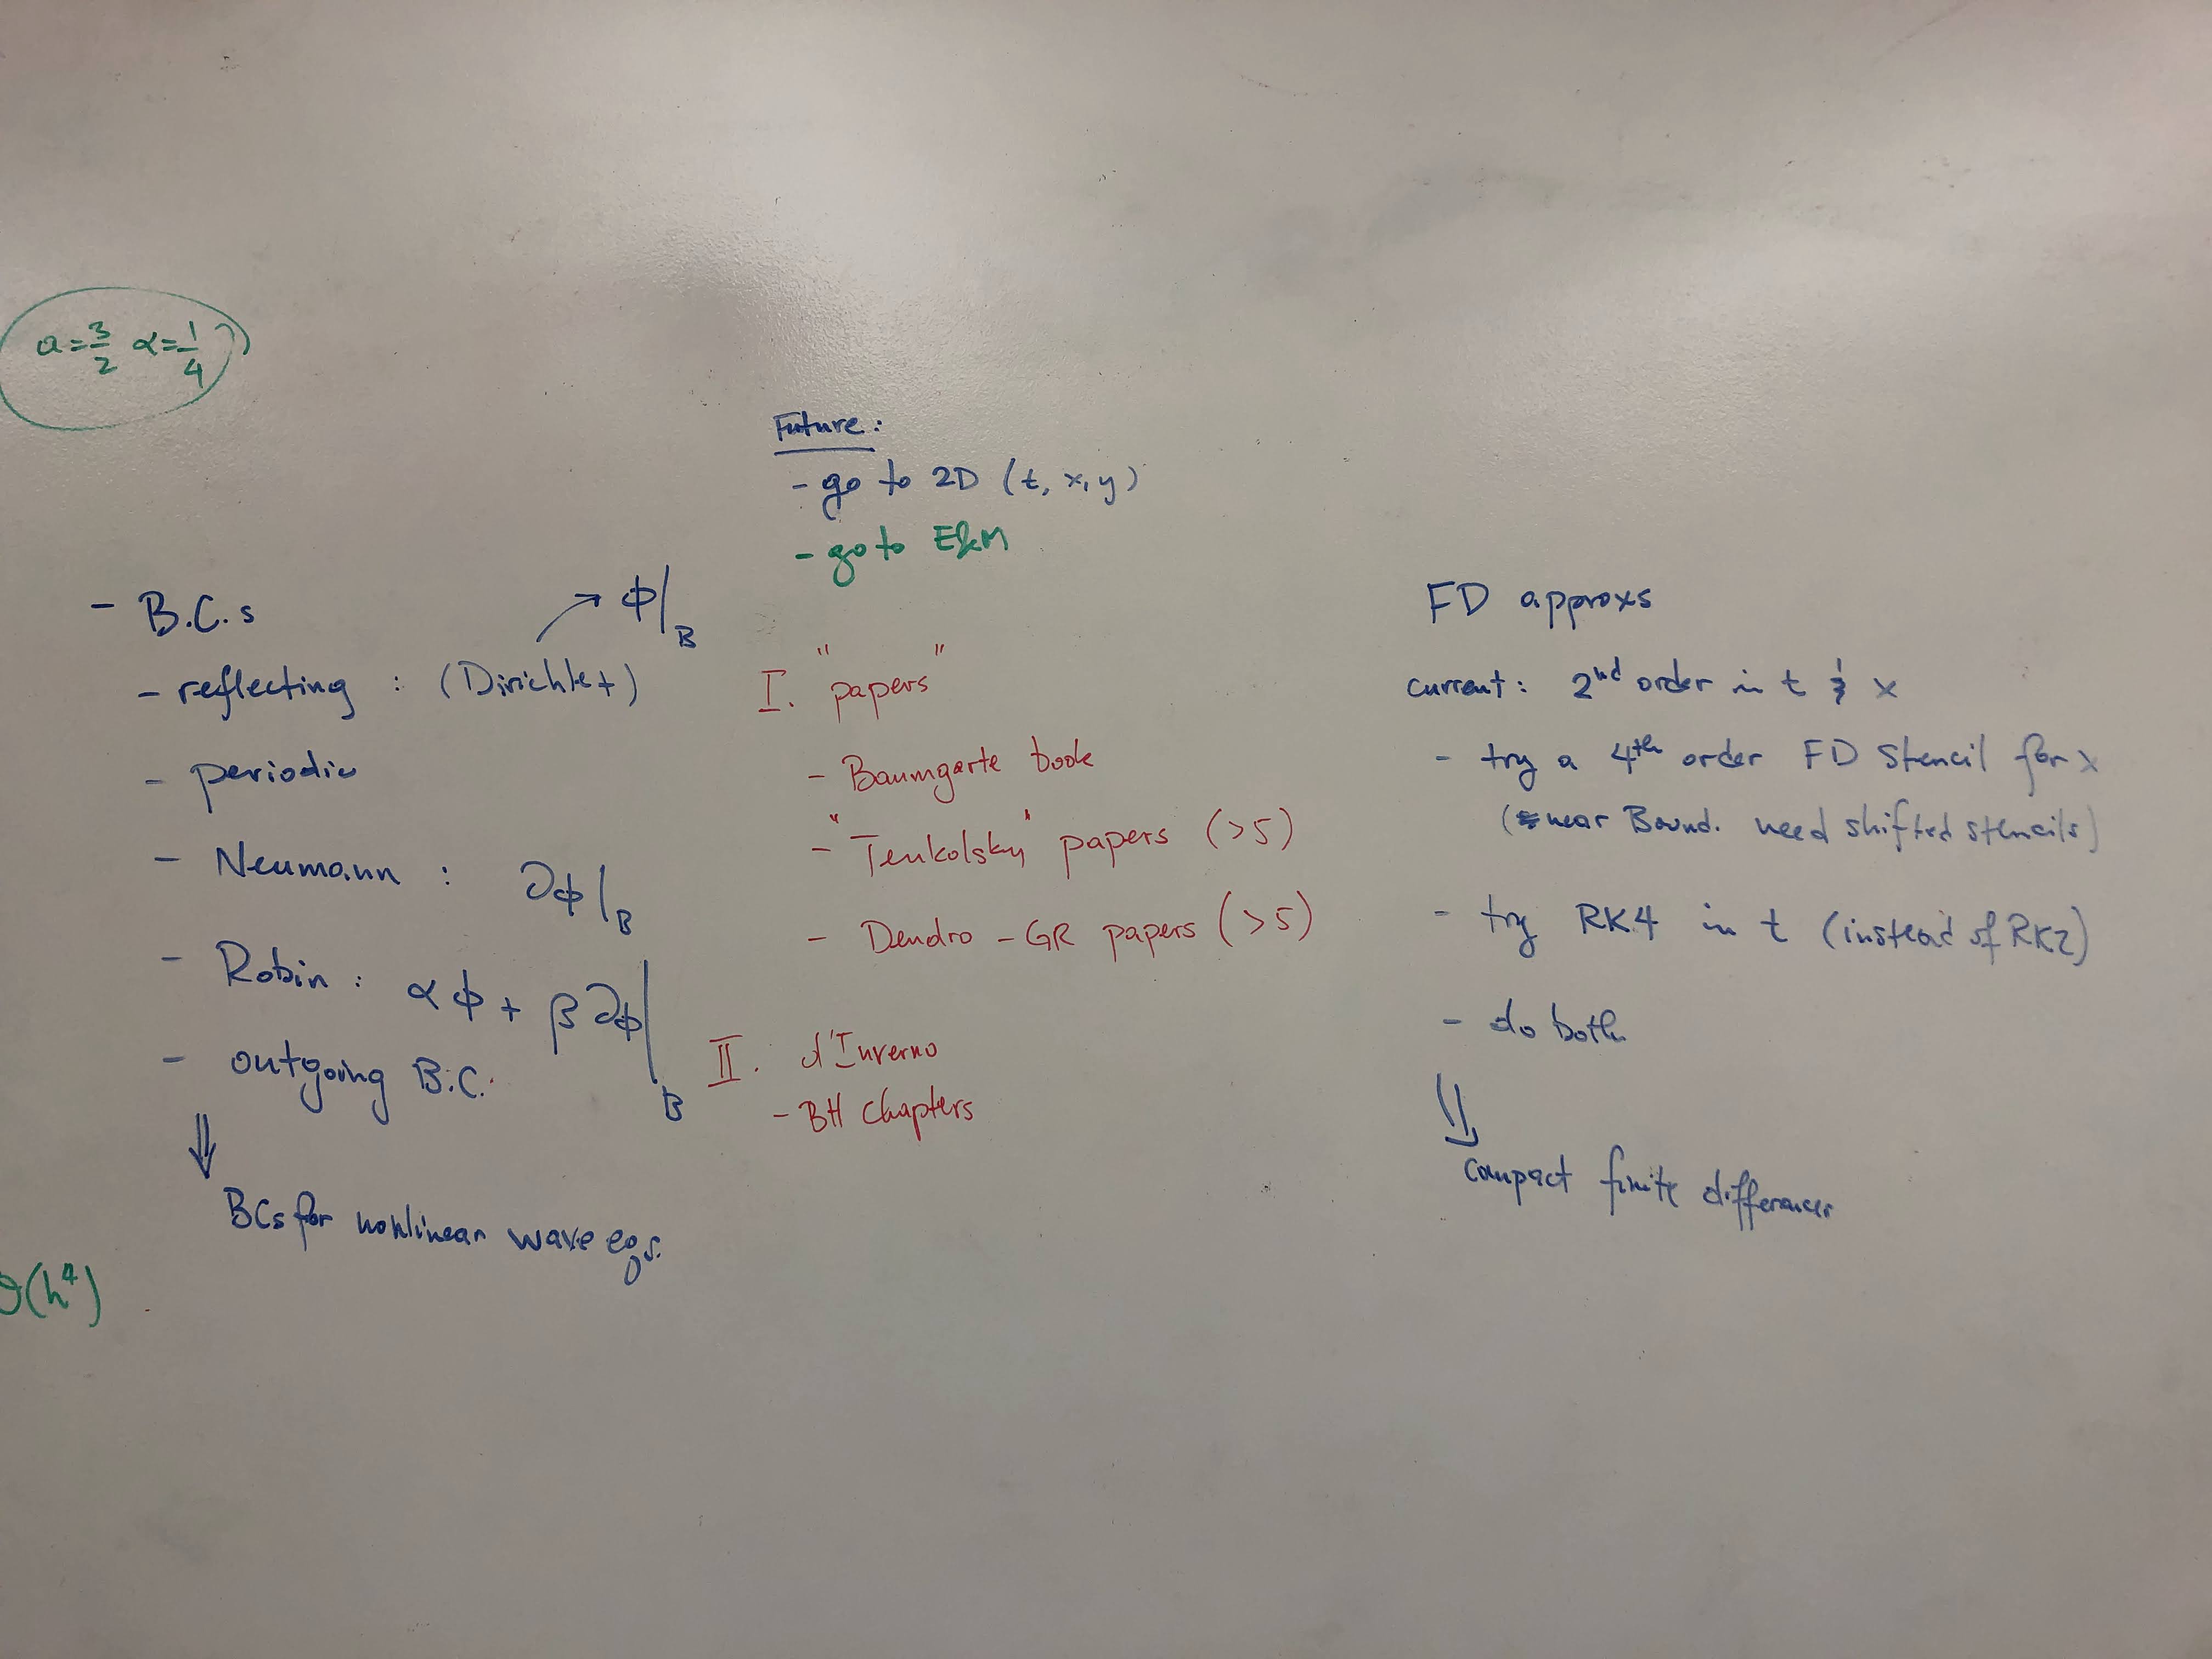 a=3/2 α=1/4
Future:
- go to 2D (t, x, y)
- go to E&M
- B.C.s
- reflecting : (Dirichlet) → ϕ|_B
- periodic
- Neumann : ∂ϕ|_B
- Robin : αϕ + β∂ϕ|_B
- outgoing B.C.
⇓
BCs for nonlinear wave eqs.
O(h⁴)
I. "papers"
- Baumgarte book
- "Teukolsky" papers (>5)
- Dendro-GR papers (>5)
II. d'Inverno
- BH chapters
FD approxs
current: 2nd order in t & x
- try a 4th order FD stencil for x
(near Bound. need shifted stencils)
- try RK4 in t (instead of RK2)
- do both
⇓
compact finite differences